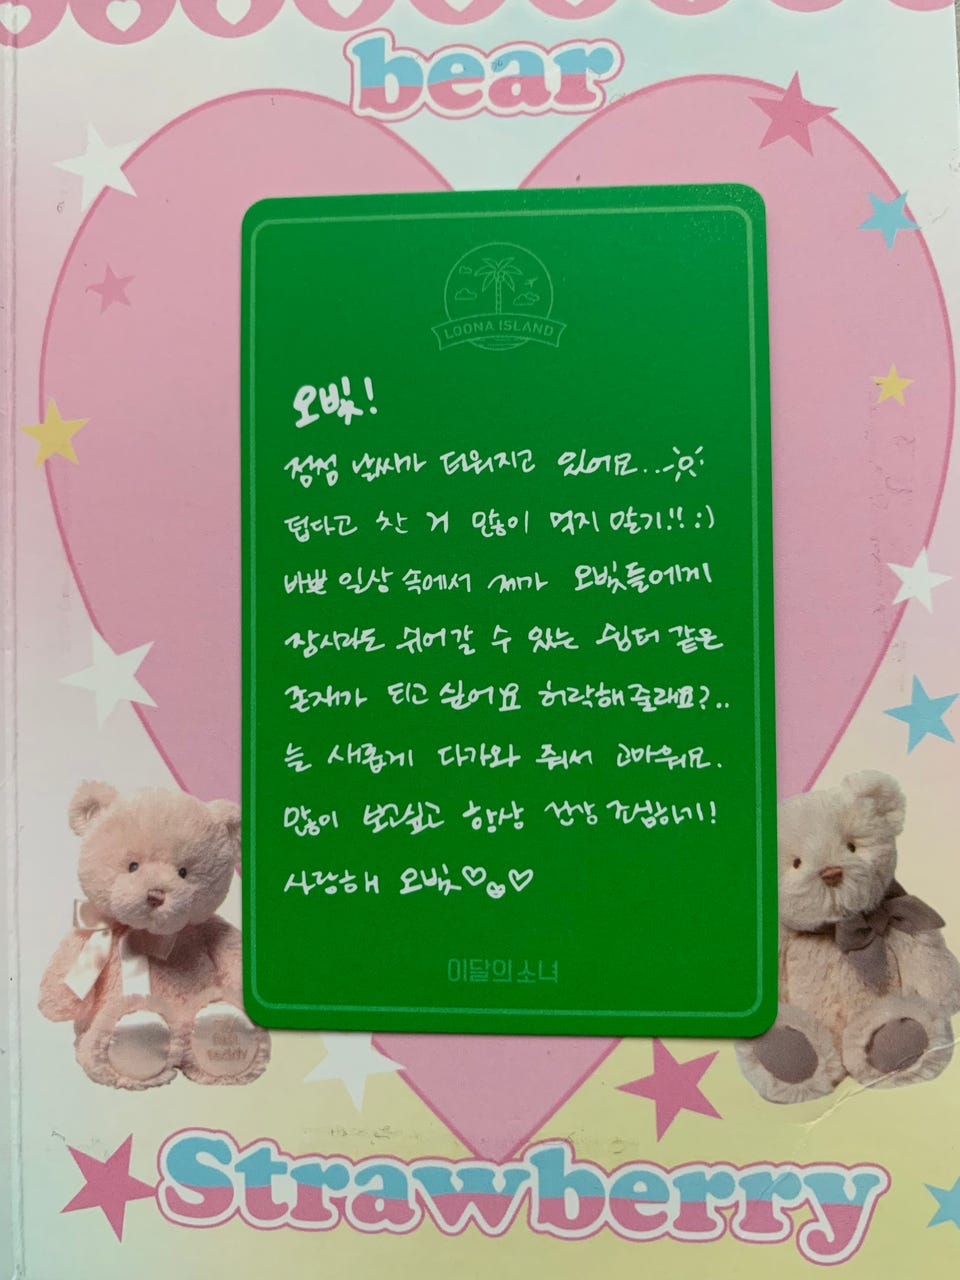 bear
LOONA ISLAND
오빛!
점점 날씨가 더워지고 있어요..
덥다고 찬 거 많이 먹지 말기!! :)
바쁜 일상 속에서 제가 오빛들에게
잠시라도 쉬어갈 수 있는 쉼터 같은
존재가 되고 싶어요 허락해줄래요?..
늘 새롭게 다가와 줘서 고마워요.
많이 보고싶고 항상 건강 조심하기!
사랑해 오빛♡♡
이달의 소녀
Strawberry